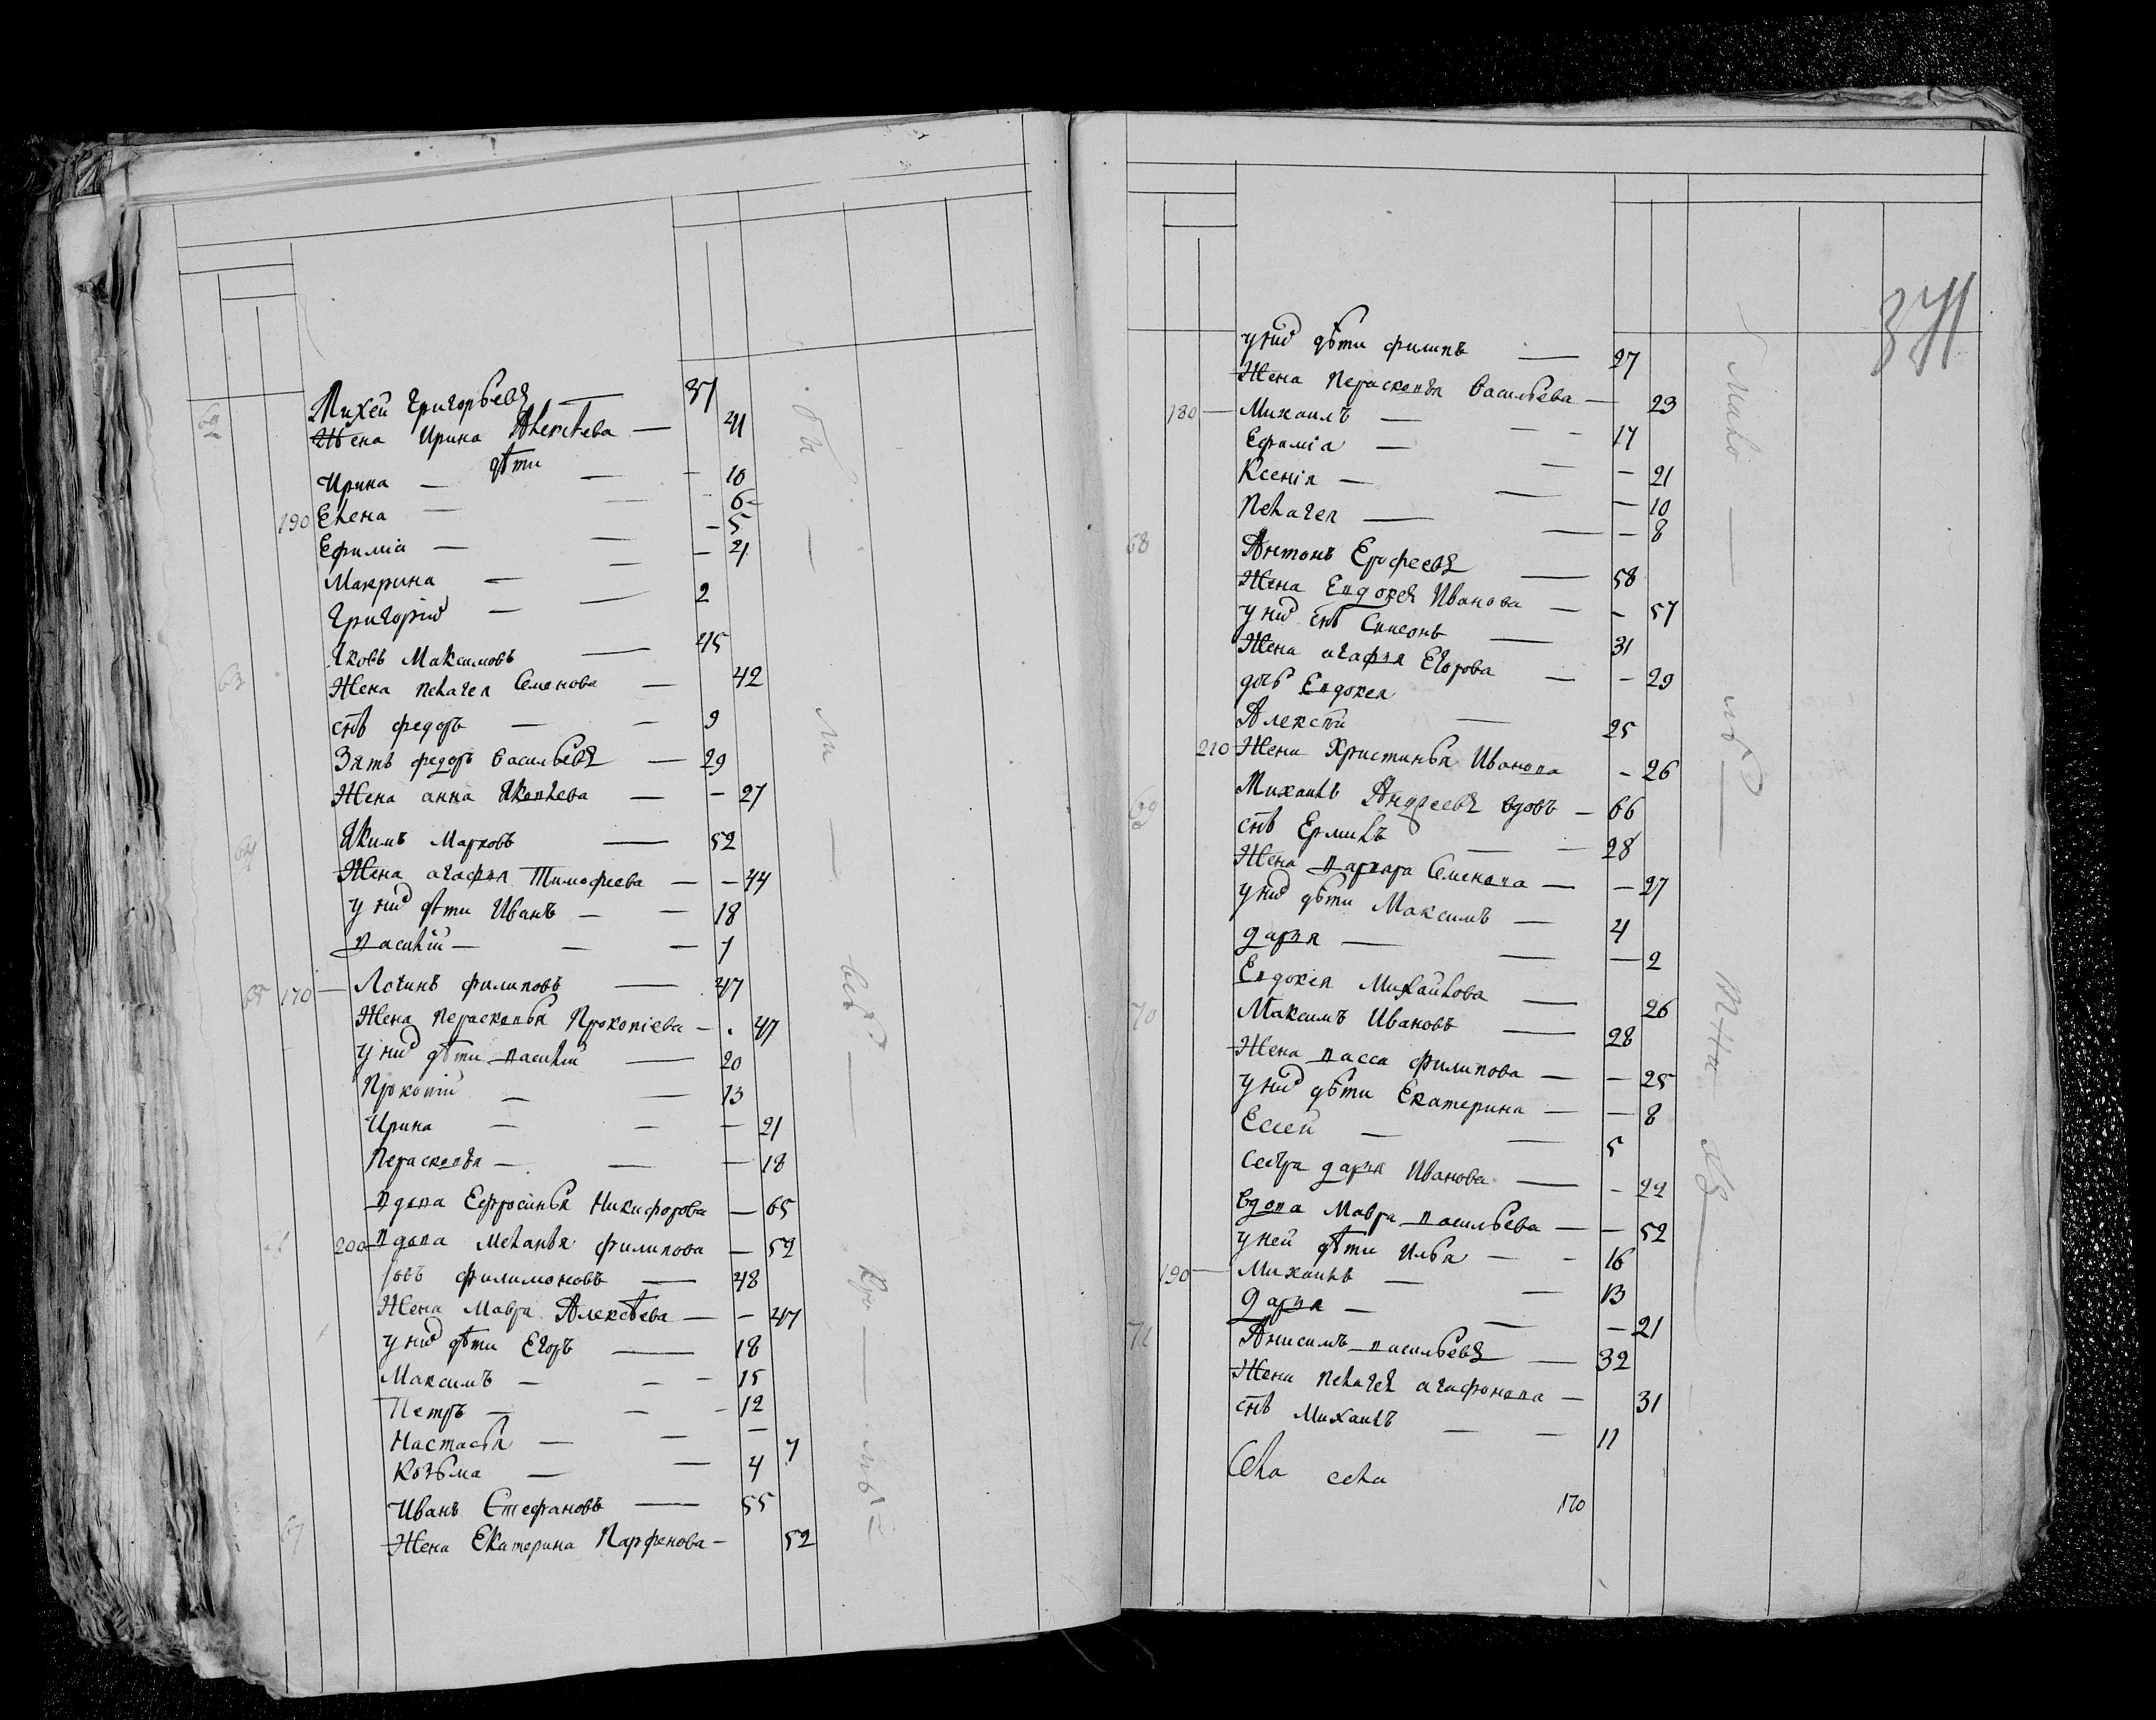 Михей Григорьевъ — 37
Жена Ирина Алексѣева — 41
дѣти
Ирина — — 10
190 Елена — 6
Ефиміа — — 5
Макрина — — 4
Григорій — 2
Яковъ Максимовъ — 45
63 Жена пелагея Семенова — 42
снъ федоръ — — 9
Зять федоръ васильевъ — 29
Жена анна Яковлева — — 27
64 Якимъ Марковъ — 52
Жена агафья Тимофеева — — 44
у них дѣти Иванъ — — 18
василій — — — 7
65 170 — Логинъ филиповъ — 47
Жена пераскопья Прокопіева — 47
у них дѣти василій — 20
Прокопій — — 13
Ирина — — — 21
Пераскопья — — — 18
вдова Ефросинья Никифорова — 65
200 вдова Меланья филипова — 52
Іовъ филимоновъ — 48
Жена Мавра Алексѣева — — 47
у них дѣти Егоръ — 18
Максимъ — — — 15
Петръ — — — 12
Настасья — — — 7
Козьма — — 4
67 Иванъ Стефановъ — 55
Жена Екатерина Парфенова — 52
бы — ли — всѣ — — ѣ
371
у них дѣти филипъ — 27
Жена Пераскопья васильева — 23
180 — Михаилъ — — — 17
Ефиміа — — — 21
Ксенія — — — 10
Пелагея — — — 8
68 Антонъ Ерофеевъ — 58
Жена Евдокея Иванова — — 57
у них снъ Симеонъ — 31
Жена агафья Егорова — — 29
дочь Евдокея
Алексѣй — 25
210 Жена Христинья Иванова — 26
69 Михаилъ Андреевъ вдовъ — 66
снъ Ермилъ — — 28
Жена варвара Семенова — — 27
у них дѣти Максимъ — 4
дарья — — — 2
Евдокія Михайлова — 26
70 Максимъ Ивановъ — 28
Жена васса филипова — — 25
у них дѣти Екатерина — — 8
Есей — — 5
Сестра дарья Иванова — — 22
вдова Мавра васильева — — 52
у ней дѣти Илья — — 16
190 — Михаилъ — — 13
Дарья — — — 21
71 Анисимъ васильевъ — 32
Жена пелагея агафонова — 31
снъ Михаилъ — — 11
Села села
170